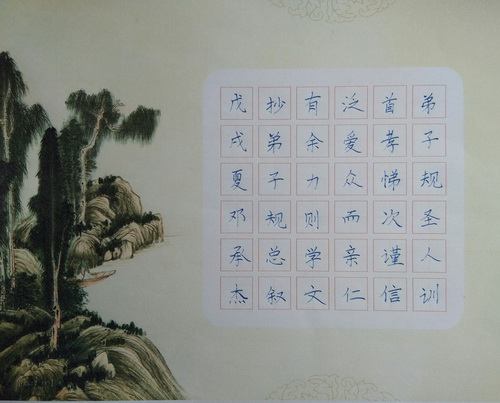 弟子规圣人训
首孝悌次谨信
泛爱众而亲仁
有余力则学文
抄弟子规总叙
戊戌夏邓承杰